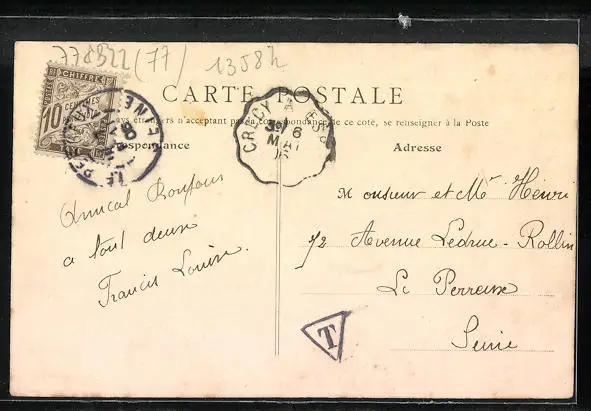 778322 (77) 1358h
CHIFFRE
10 CENTIMES
CARTE POSTALE
pays étrangers n'acceptant pas la correspondance de ce côté, se renseigner à la Poste
Correspondance
Adresse
CRECY
6
MAI
LE PE
Amical Bonjour
a tout deux
Francis Louise.
Monsieur et Mr Henri
72 Avenue Ledrue-Rollin
Le Perreux
Seine
T